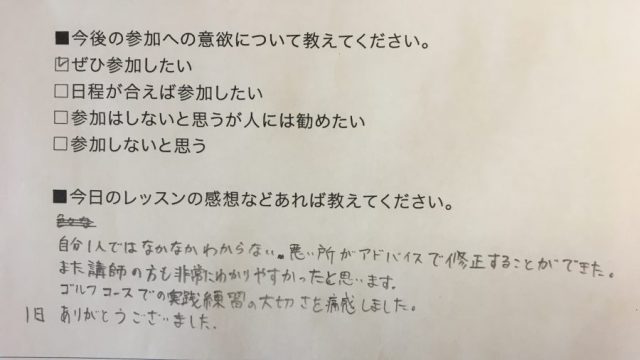 ■今後の参加への意欲について教えてください。
☑ぜひ参加したい
□日程が合えば参加したい
□参加はしないと思うが人には勧めたい
□参加しないと思う
■今日のレッスンの感想などあれば教えてください。
自分1人ではなかなかわからない。悪い所がアドバイスで修正することができた。
また講師の方も非常にわかりやすかったと思います。
ゴルフコースでの実践練習の大切さを痛感しました。
1日 ありがとうございました.